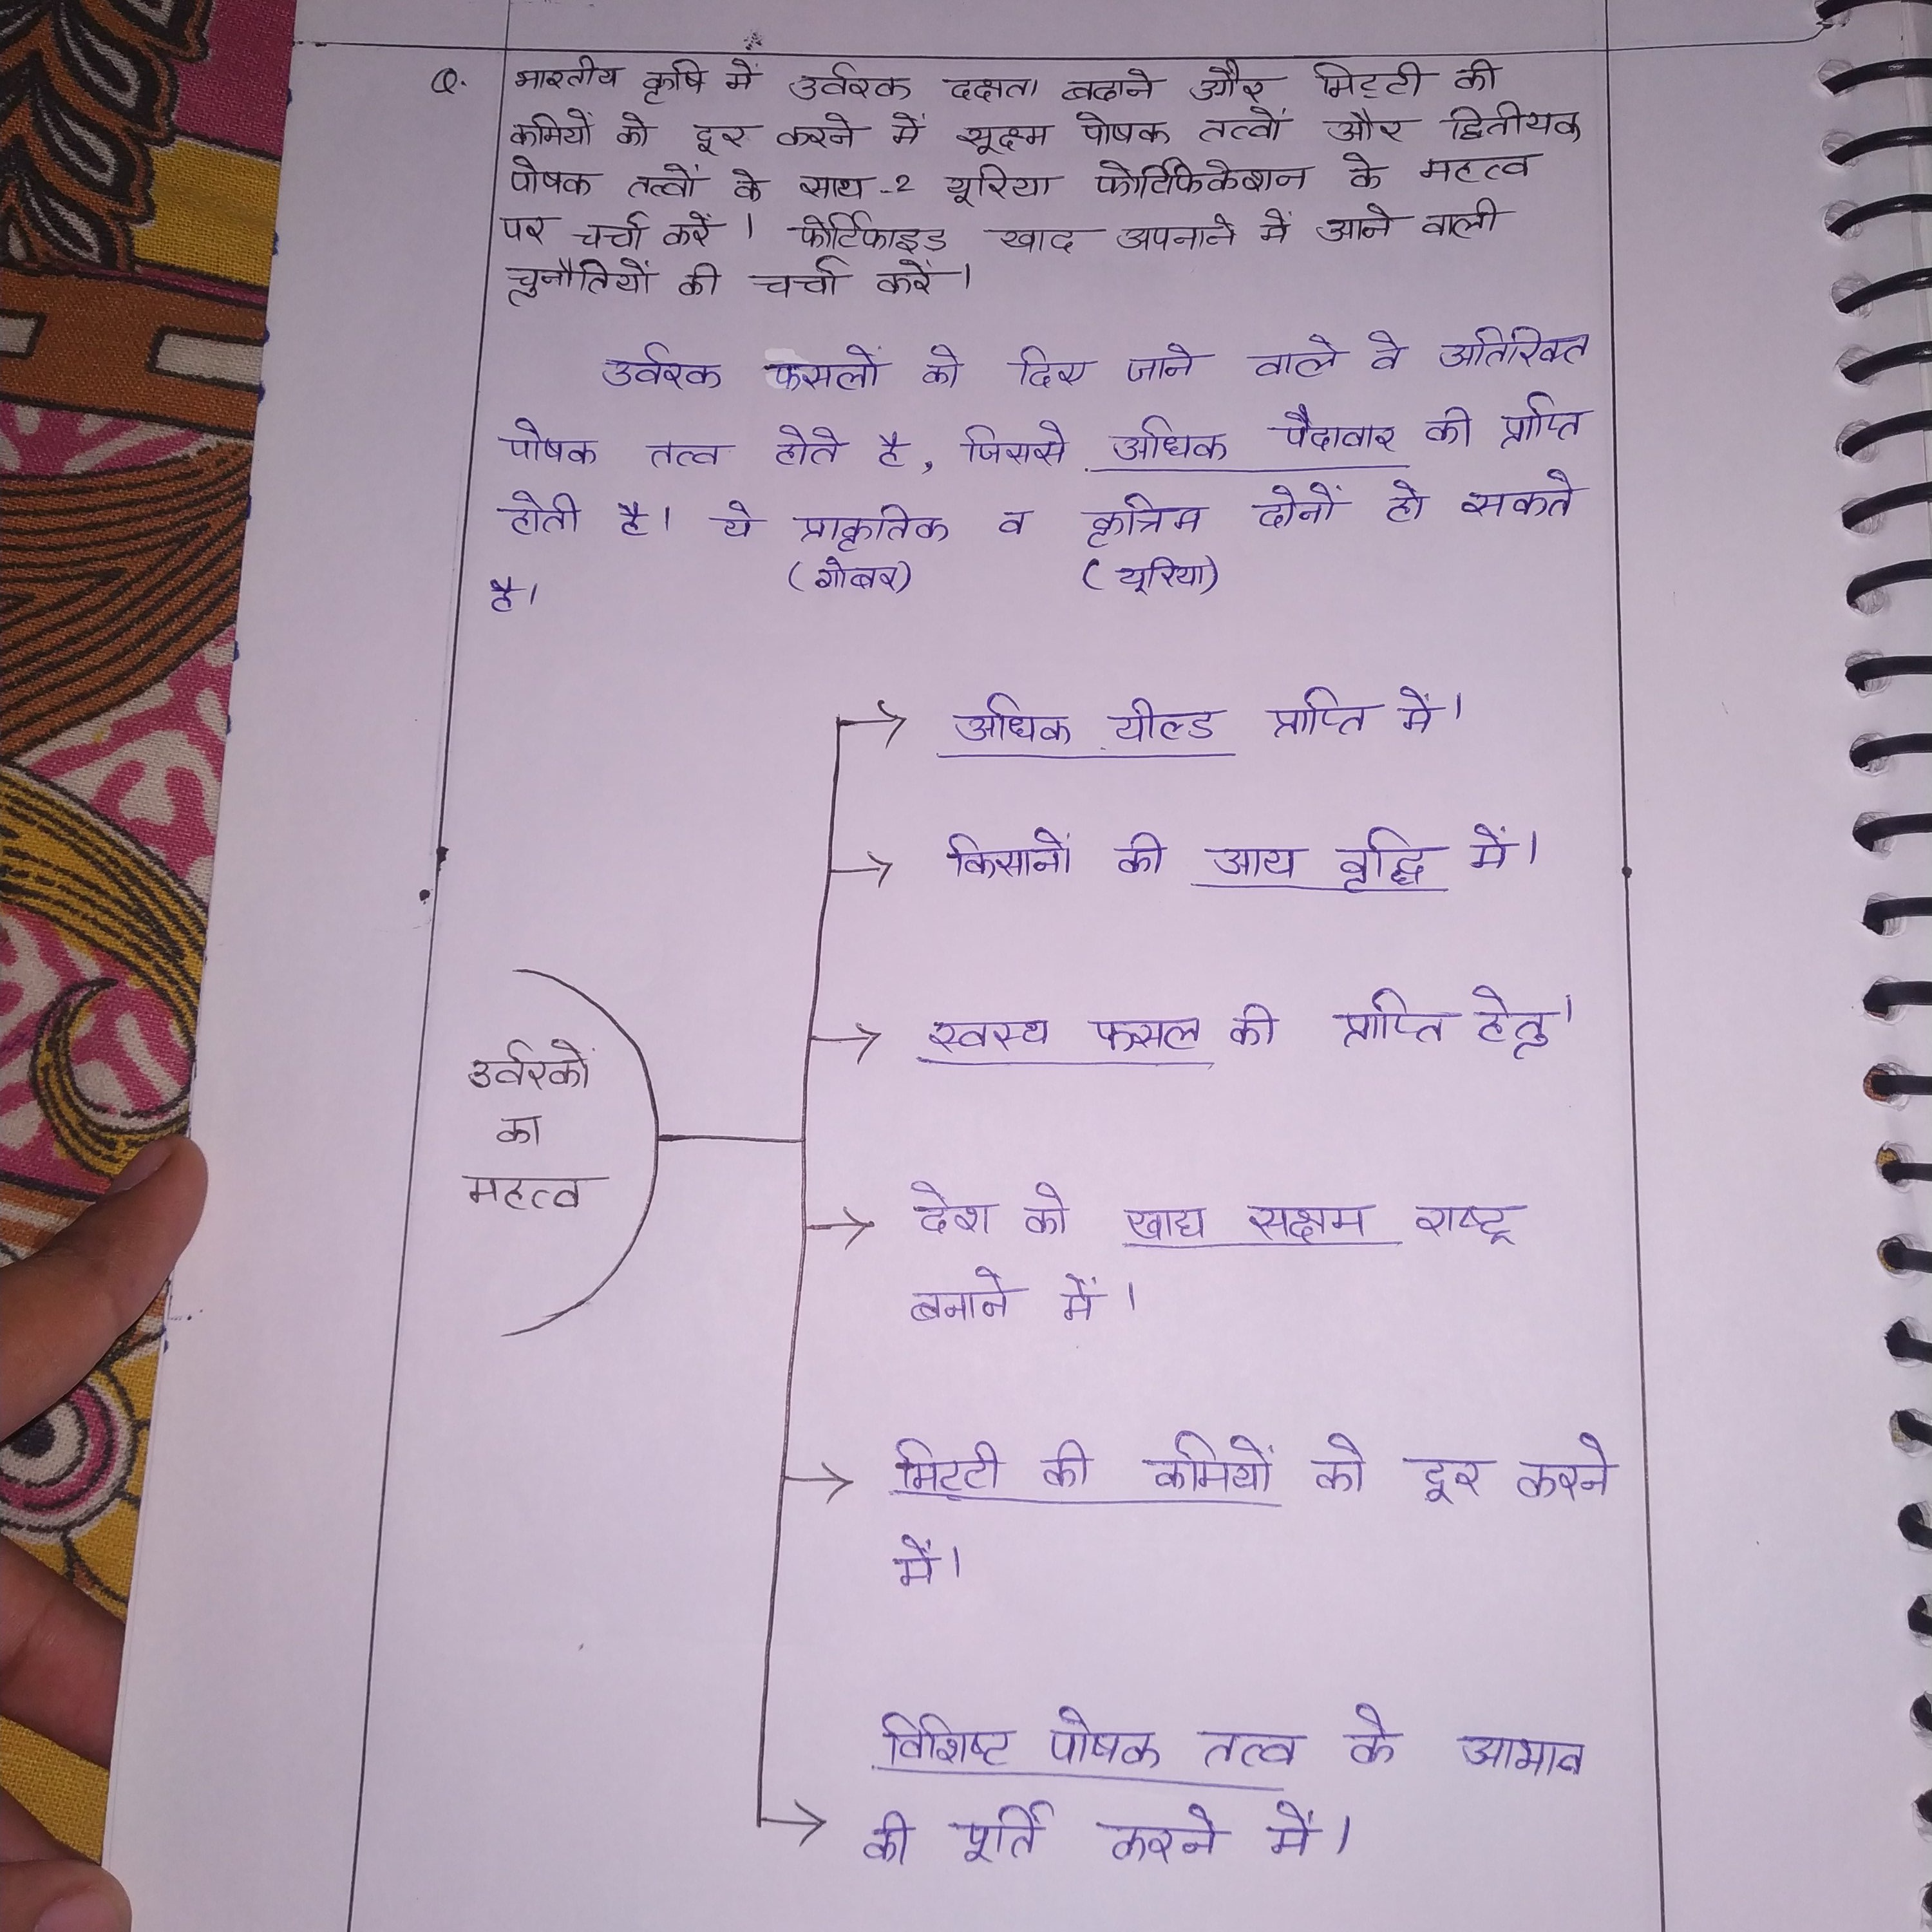 Q. भारतीय कृषि में उर्वरक दक्षता बढाने और मिट्टी की
कमियों को दूर करने में सूक्ष्म पोषक तत्वों और द्वितीयक
पोषक तत्वों के साथ-2 यूरिया फोर्टिफिकेशन के महत्व
पर चर्चा करें। फोर्टिफाइड खाद अपनाने में आने वाली
चुनौतियों की चर्चा करें।
उर्वरक फसलों को दिए जाने वाले वे अतिरिक्त
पोषक तत्व होते है, जिससे अधिक पैदावार की प्राप्ति
होती है। ये प्राकृतिक व कृत्रिम दोनों हो सकते
(गोबर) (यूरिया)
है।
अधिक यील्ड प्राप्ति में।
किसानों की आय वृद्धि में।
स्वस्थ फसल की प्राप्ति हेतु।
उर्वरकों
का
महत्व
देश को खाद्य सक्षम राष्ट्र
बनाने में।
मिट्टी की कमियों को दूर करने
में।
विशिष्ट पोषक तत्व के आभाव
की पूर्ति करने में।